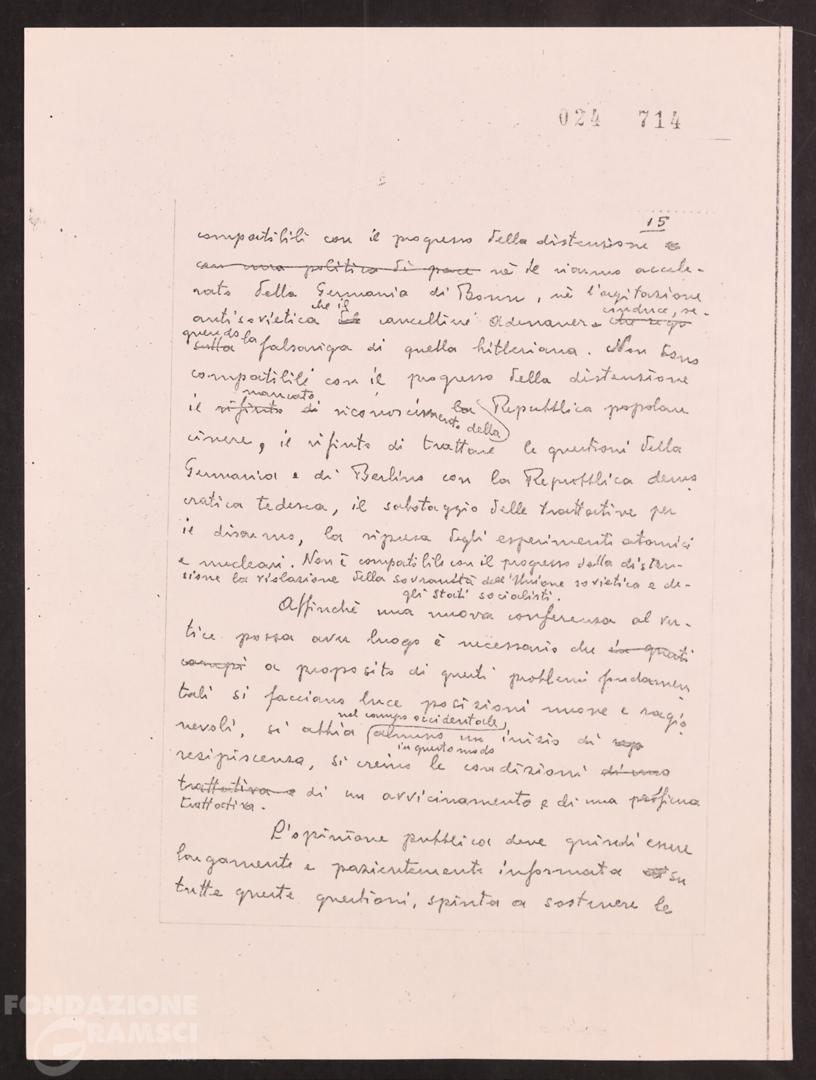 024 714
15
compatibili con il progresso della distensione e
con una politica di pace nè il riarmo accele-
rato della Germania di Bonn, nè l'agitazione
antisovietica che il cancelliere Adenauer conduce, se-
guendo la falsariga di quella hitleriana. Non sono
compatibili con il progresso della distensione
il rifiuto di mancato riconoscimento della la Repubblica popolare
cinese, il rifiuto di trattare le questioni della
Germania e di Berlino con la Repubblica demo
cratica tedesca, il sabotaggio delle trattative per
il disarmo, la ripresa degli esperimenti atomici
e nucleari. Non è compatibile con il progresso della disten-
sione la violazione della sovranità dell'Unione sovietica e de-
gli Stati socialisti.
Affinchè una nuova conferenza al ver-
tice possa aver luogo è necessario che in questi
campi a proposito di questi problemi fondamen
tali si facciano luce posizioni nuove e ragio
nevoli, si abbia nel campo occidentale almeno un inizio di
resipiscenza, si creino in questo modo le condizioni di una
trattativa e di un avvicinamento e di una proficua
trattativa.
L'opinione pubblica deve quindi essere
largamente e pazientemente informata su
tutte queste questioni, spinta a sostenere le
FONDAZIONE
GRAMSCI